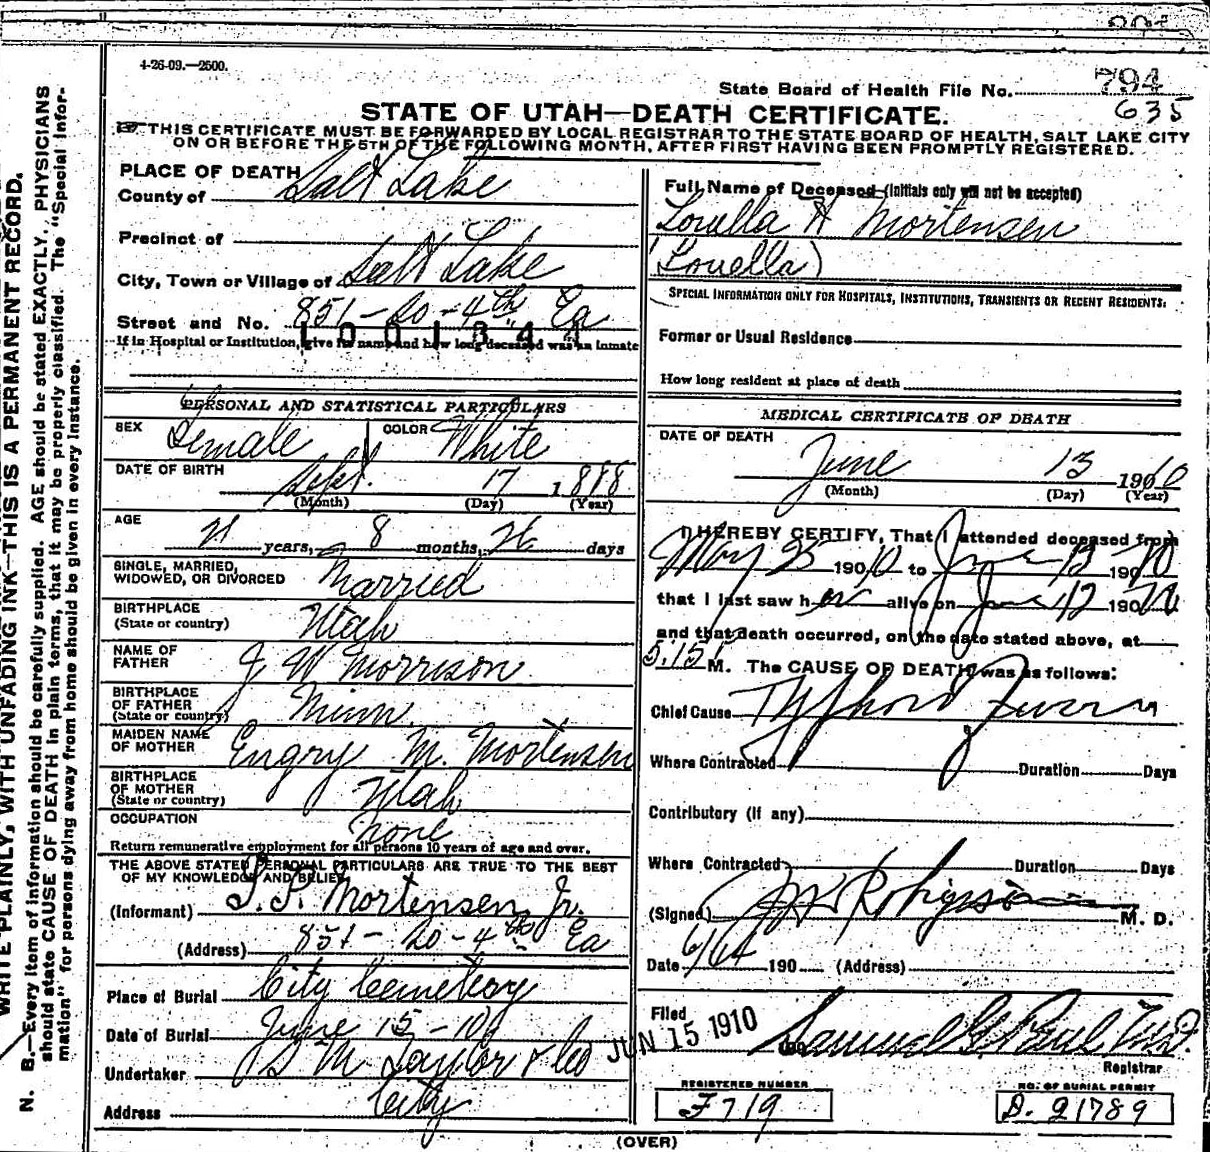 4-26-09.—2500.
State Board of Health File No. 794
635
STATE OF UTAH—DEATH CERTIFICATE.
THIS CERTIFICATE MUST BE FORWARDED BY LOCAL REGISTRAR TO THE STATE BOARD OF HEALTH, SALT LAKE CITY
ON OR BEFORE THE 5TH OF THE FOLLOWING MONTH, AFTER FIRST HAVING BEEN PROMPTLY REGISTERED.
WRITE PLAINLY, WITH UNFADING INK—THIS IS A PERMANENT RECORD.
N. B.—Every item of information should be carefully supplied. AGE should be stated EXACTLY. PHYSICIANS
should state CAUSE OF DEATH in plain terms, that it may be properly classified. The "Special Infor-
mation" for persons dying away from home should be given in every instance.
PLACE OF DEATH
County of Salt Lake
Precinct of
City, Town or Village of Salt Lake
Street and No. 851-20-4th Ea
1001341
If in Hospital or Institution, give its name and how long deceased was an inmate
PERSONAL AND STATISTICAL PARTICULARS
SEX Female COLOR White
DATE OF BIRTH Sept. 17 1888
(Month) (Day) (Year)
AGE 21 years, 8 months, 26 days
SINGLE, MARRIED,
WIDOWED, OR DIVORCED Married
BIRTHPLACE
(State or country) Utah
NAME OF
FATHER J W Morrison
BIRTHPLACE
OF FATHER
(State or country) Minn.
MAIDEN NAME
OF MOTHER Engry M. Mortensen
BIRTHPLACE
OF MOTHER
(State or country) Utah
OCCUPATION none
Return remunerative employment for all persons 10 years of age and over.
THE ABOVE STATED PERSONAL PARTICULARS ARE TRUE TO THE BEST
OF MY KNOWLEDGE AND BELIEF
(Informant) Mortensen Jr.
(Address) 851-20-4th Ea
Place of Burial City Cemetery
Date of Burial June 15-10
Undertaker S M Taylor & Co
Address City
Full Name of Deceased (Initials only will not be accepted)
Louella H Mortensen
(Louella)
SPECIAL INFORMATION ONLY FOR HOSPITALS, INSTITUTIONS, TRANSIENTS OR RECENT RESIDENTS:
Former or Usual Residence
How long resident at place of death
MEDICAL CERTIFICATE OF DEATH
DATE OF DEATH
June 13 1910
(Month) (Day) (Year)
I HEREBY CERTIFY, That I attended deceased from
May 25 1910 to June 13 1910
that I last saw her alive on June 12 1910
and that death occurred, on the date stated above, at
5.15 M. The CAUSE OF DEATH was as follows:
Chief Cause Typhoid Fever
Where Contracted Duration Days
Contributory (if any)
Where Contracted Duration Days
(Signed) M. D.
Date 6/14 190 (Address)
Filed JUN 15 1910 Samuel G. Paul M.D.
Registrar
REGISTERED NUMBER NO. OF BURIAL PERMIT
F719 D. 21789
(OVER)